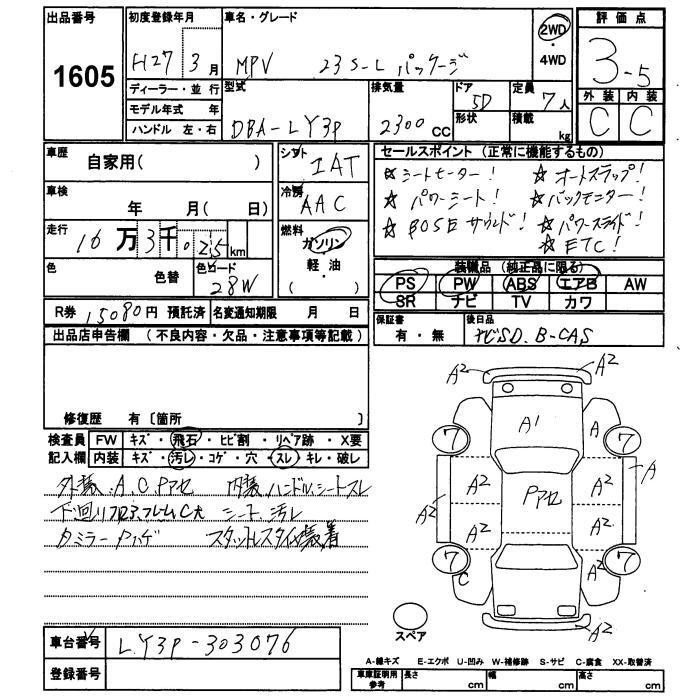 出品番号 1605
初度登録年月 H27 3月
車名・グレード MPV 23S-L パッケージ
2WD・4WD
評価点 3.5
外装 C 内装 C
ディーラー・並行
モデル年式 年
ハンドル 左・右
型式 DBA-LY3P
排気量 2300 CC
ドア 5D
形状
定員 7人
積載 kg
車歴 自家用( )
シフト IAT
車検 年 月( 日)
冷房 AAC
走行 16万3千025km
燃料 ガソリン・軽・油( )
色 色替
色コード 28W
R券 15080円 預託済
名変通知期限 月 日
セールスポイント(正常に機能するもの)
☆シートヒーター! ☆オートスラップ!
☆パワーシート! ☆バックモニター!
☆BOSEサウンド! ☆パワースライド!
☆ETC!
装備品(純正品に限る)
PS PW ABS エアB AW
SR ナビ TV カワ
保証書 有・無
後日品 ナビSD. B-CAS
出品店申告欄(不良内容・欠品・注意事項等記載)
修復歴 有〔箇所 〕
検査員記入欄
FW キズ・飛石・ヒビ割・リペア跡・X要
内装 キズ・汚レ・コゲ・穴・スレ・キレ・破レ
外装.A.C.Pアセ 内装ハンドル.シートスレ
下廻リフロア.フレームC大 シート汚レ
スタットレスタイヤ装着
A2 A2
A1 A
7 7
A2 A2 A
Pアセ
A2 A2 A2
7 7
C A2
A2
スペア
車台番号 LY3P-303076
登録番号
A-線キズ E-エクボ U-凹み W-補修跡 S-サビ C-腐食 XX-取替済
車庫証明用参考 長さ cm 幅 cm 高さ cm